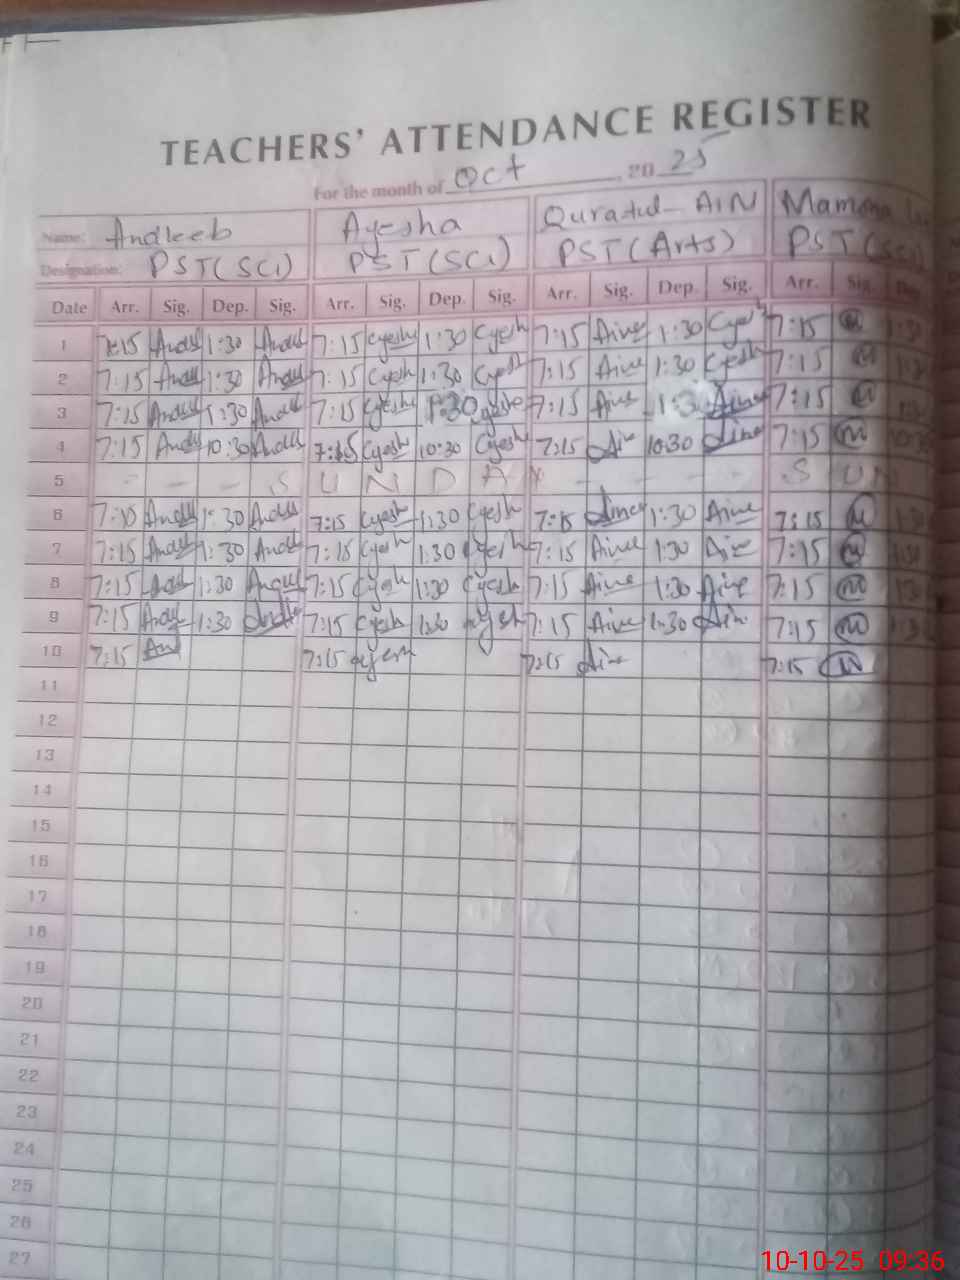 TEACHERS' ATTENDANCE REGISTER
For the month of Oct 20 25
Name: Andleeb Ayesha Quratul-AIN Mamona
Designation: PST(SCI) PST(SCI) PST(Arts) PST(SCI)
Date Arr. Sig. Dep. Sig. Arr. Sig. Dep. Sig. Arr. Sig. Dep. Sig. Arr. Sig. Dep
1 7:15 Andl 1:30 Andl 7:15 Cyesh 1:30 Cyesh 7:15 Aine 1:30 Cyesh 7:15 M 1:30
2 7:15 Andl 1:30 Andl 7:15 Cyesh 1:30 Cyesh 7:15 Aine 1:30 Cyesh 7:15 M 1:3
3 7:15 Andl 1:30 Andl 7:15 Cyesh 1:30 Cyesh 7:15 Aine 1:3 Aine 7:15 M 1:30
4 7:15 Andl 10:30 Andl 7:15 Cyesh 10:30 Cyesh 7:15 Ain 10:30 Aine 7:15 M 10:30
5 - - - S U N D A - - - - S U N
6 7:10 Andl 1:30 Andl 7:15 Cyesh 1:30 Cyesh 7:15 Aine 1:30 Aine 7:15 M 1:30
7 7:15 Andl 1:30 Andl 7:15 Cyesh 1:30 Cyesh 7:15 Aine 1:30 Aine 7:15 M 1:30
8 7:15 Andl 1:30 Andl 7:15 Cyesh 1:30 Cyesh 7:15 Aine 1:30 Aine 7:15 M 1:30
9 7:15 Andl 1:30 Andl 7:15 Cyesh 1:30 Cyesh 7:15 Aine 1:30 Ain 7:15 M 1:30
10 7:15 An 7:15 Cyesh 7:15 Ain 7:15 M
11
12
13
14
15
16
17
18
19
20
21
22
23
24
25
26
27
10-10-25 09:36